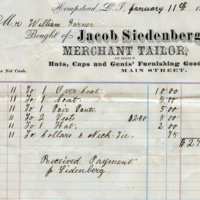 Hempstead, L. I. January 11th 1
Mr William Varner
Bought of Jacob Siedenberg
MERCHANT TAILOR,
Hats, Caps and Gents' Furnishing Goods
MAIN STREET.
s Net Cash.
11 To 1 Over Coat. 10 00
11 To 1 Coat. 5
11 To 1 Pair Pants.
11 To 2 Vests $2 50 5 00
11 To 1 Hat. 2 00
11 To Collars & Neck-Tie.
$27
Received Payment
J. Sidenberg